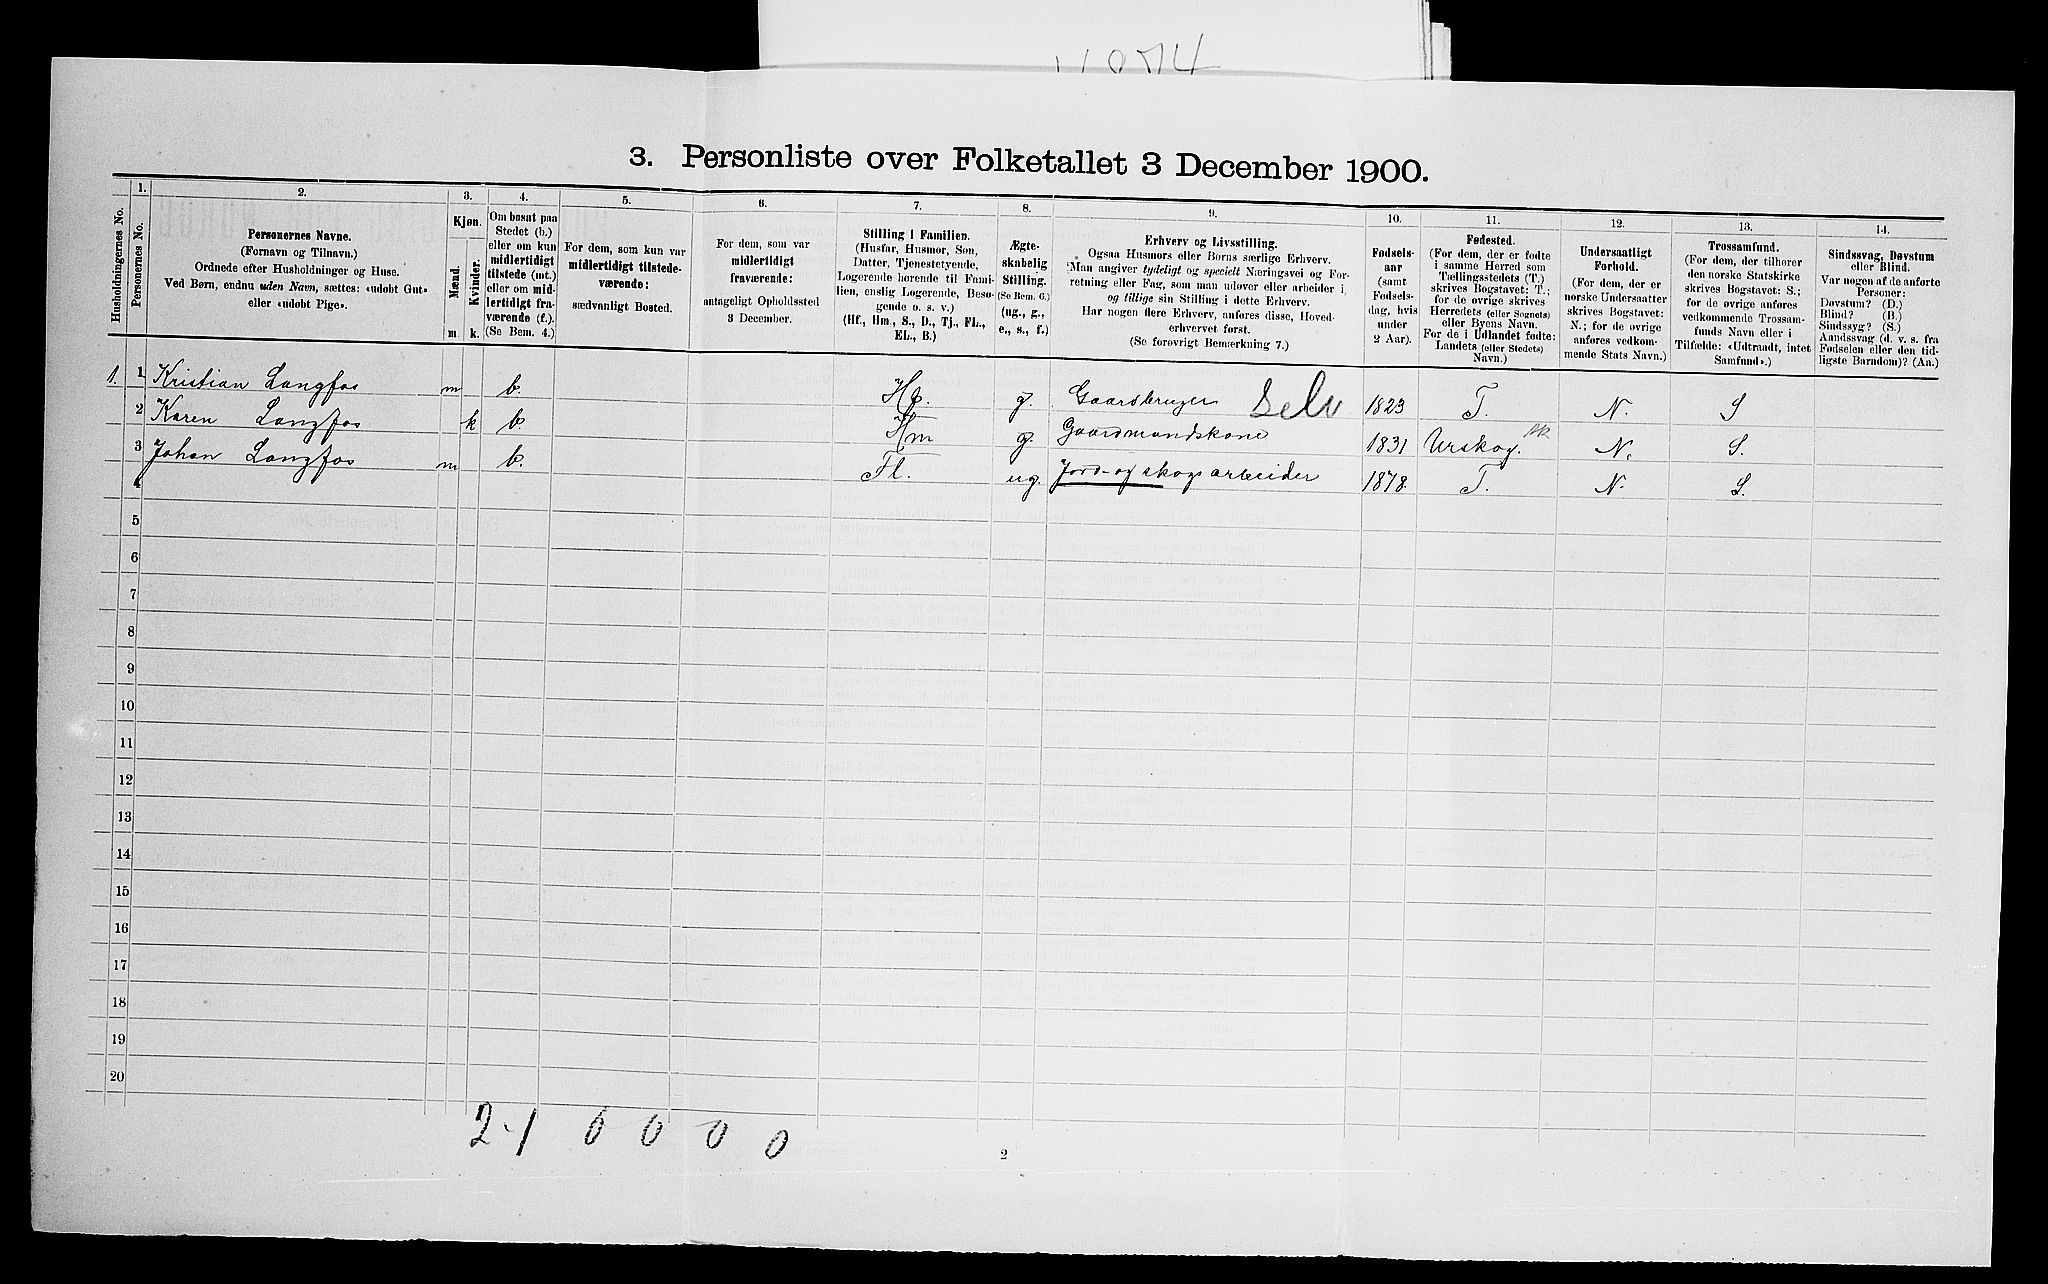 3. Personliste over Folketallet 3 December 1900.
Husholdningernes No.
1.
Personernes No.
2.
Personernes Navne.
(Fornavn og Tilnavn.)
Ordnede efter Husholdninger og Huse.
Ved Børn, endnu uden Navn, sættes: «udøbt Gut»
eller «udøbt Pige».
3.
Kjøn.
Mænd.
Kvinder.
m.
k.
4.
Om bosat paa
Stedet (b.)
eller om kun
midlertidigt
tilstede (mt.)
eller om mid-
lertidigt fra-
værende (f.).
(Se Bem. 4.)
5.
For dem, som kun var
midlertidigt tilstede-
værende:
sædvanligt Bosted.
6.
For dem, som var
midlertidigt
fraværende:
antageligt Opholdssted
3 December.
7.
Stilling i Familien.
(Husfar, Husmor, Søn,
Datter, Tjenestetyende,
Logerende hørende til Fami-
lien, enslig Logerende, Besø-
gende o. s. v.)
(Hf., Hm., S., D., Tj., FL.,
EL., B.)
8.
Ægte-
skabelig
Stilling.
(Se Bem. 6.)
(ug., g.,
e., s., f.)
9.
Erhverv og Livsstilling.
Ogsaa Husmors eller Børns særlige Erhverv.
Man angiver tydeligt og specielt Næringsvei og For-
retning eller Fag, som man udøver eller arbeider i,
og tillige sin Stilling i dette Erhverv.
Har nogen flere Erhverv, anføres disse, Hoved-
erhvervet først.
(Se forøvrigt Bemærkning 7.)
10.
Fødsels-
aar
(samt
Fødsels-
dag, hvis
under
2 Aar).
11.
Fødested.
(For dem, der er fødte
i samme Herred som
Tællingsstedets (T.)
skrives Bogstavet: T.;
for de øvrige skrives
Herredets (eller Sognets)
eller Byens Navn.
For de i Udlandet fødte:
Landets (eller Stedets)
Navn.)
12.
Undersaatligt
Forhold.
(For dem, der er
norske Undersaatter
skrives Bogstavet:
N.; for de øvrige
anføres vedkom-
mende Stats Navn.)
13.
Trossamfund.
(For dem, der tilhører
den norske Statskirke
skrives Bogstavet: S.;
for de øvrige anføres
vedkommende Trossam-
funds Navn eller i
Tilfælde: «Udtraadt, intet
Samfund».)
14.
Sindssvag, Døvstum
eller Blind.
Var nogen af de anførte
Personer:
Døvstum? (D.)
Blind? (B.)
Sindssyg? (S.)
Aandssvag (d. v. s. fra
Fødselen eller den tid-
ligste Barndom)? (Aa.)
1. 1 Kristian Langfos m b. Hf. g. Gaardbruger Selv 1823 T. N. S
2 Karen Langfos k b. Hm g. Gaardmandskone 1831 Urskog. N. S.
3 Johan Langfos m b. Fl. ug. Jord- og skogsarbeider 1878. T. N. S.
4
5
6
7
8
9
10
11
12
13
14
15
16
17
18
19
20
2-1 0 0 0 0
2